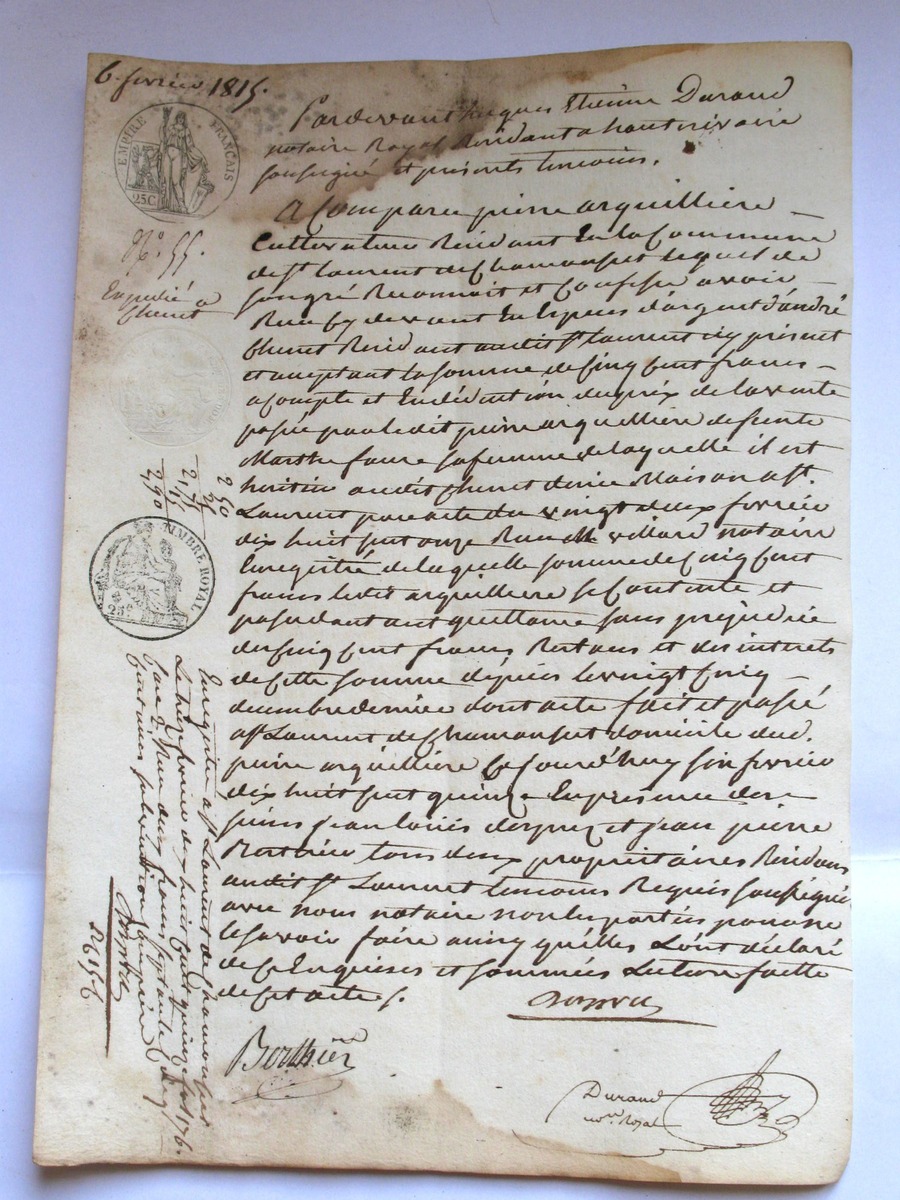 6. fevrier 1815.
EMPIRE FRANÇAIS
25C
N.º 55.
Expedié a
Chenet
TIMBRE ROYAL
25ᶜ
Pardevant Jacques Etienne Durand
notaire Royal Residant a hauterivoire
soussigné et presents temoins.
A Comparu pierre arquilliere
Cultivateur Residant En la Commune
de St. Laurent de Chamousset lequel de
son gré Reconnait et Confesse avoir
Recu Cy devant En Espèces d'argent d'andré
Chenet Residant audit St. Laurent icy présent
et acceptant la somme de Cinq Cent francs
acompte et En déduction du prix de la vente
passée par ledit pierre arquilliere defeinte
Marthe faure sa femme de laquelle il est
heritier audit Chenet d'une Maison a St.
Laurent par acte du vingt deux fevrier
dix huit Cent onze Recu Me villard notaire
Enregistré de laquelle somme de Cinq Cent
francs ledit arquilliere se Contente et
passe d'autant quittance sans prejudice
des Cinq Cent francs Restans et des interets
de Cette somme depuis le vingt Cinq
decembre dernier dont acte fait et passé
a St. Laurent de Chamousset domicile dud.
pierre arquilliere Ce Jourd'huy six fevrier
dix huit Cent quinze En presence de
sieurs Jean Louis et Jean pierre
tous deux propriétaires Residans
audit St. Laurent temoins Requis soussignés
avec nous notaire non les parties pour ne
le savoir faire ainsy qu'elles L'ont déclaré
de Ce Enquises et sommées Lecture faitte
de Cet acte.
Berthier
Durand
nore. Royal
2 50
25
2,75
15
2,90
Enregistré a St. Laurent de Chamousset
Le treize fevrier dix huit Cent quinze fol. 176
Case 2. Recu deux francs septante Cinq
Centimes subvention Comprise